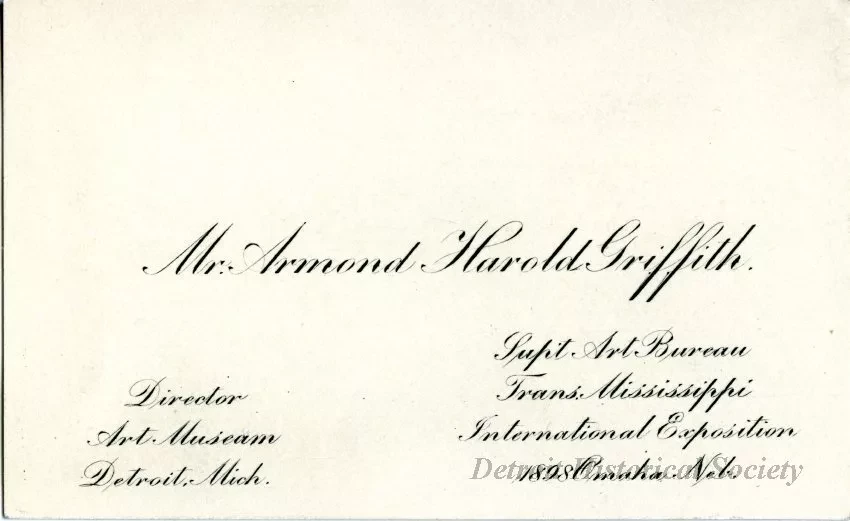 Mr. Armond Harold Griffith.
Director
Art Museum
Detroit, Mich.
Sup't Art Bureau
Trans. Mississippi
International Exposition
1898 Omaha, Neb.
Detroit Historical Society